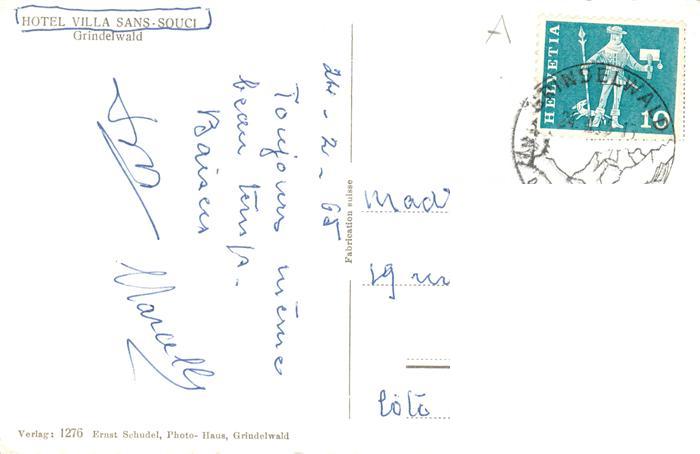 HOTEL VILLA SANS-SOUCI
Grindelwald
24-2-65
Toujours même
beau temps.
Baisers
Marcelle
Fabrication suisse
Verlag: 1276 Ernst Schudel, Photo-Haus, Grindelwald
A
HELVETIA
10
GRINDELWALD
Mad
19